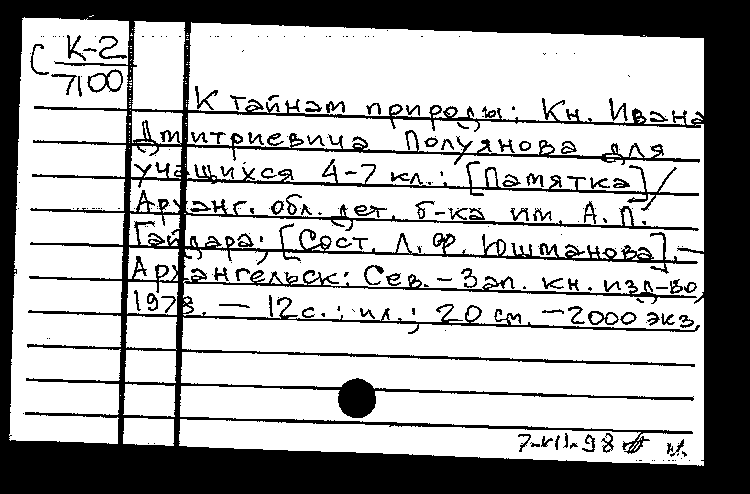 С К-2
7100
К тайнам природы: Кн. Ивана
Дмитриевича Полуянова для
учащихся 4-7 кл.: [Памятка] /
Арханг. обл. дет. б-ка им. А. П.
Гайдара; [Сост. Л. Ф. Юшманова]. —
Архангельск: Сев. - Зап. кн. изд-во,
1978. — 12 с.: ил.; 20 см. — 2000 экз.